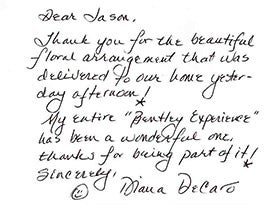 Dear Jason,
Thank you for the beautiful
floral arrangement that was
delivered to our home yester-
day afternoon!
My entire "Bentley Experience"
has been a wonderful one,
thanks for being part of it!
Sincerely,
Diana DeCaro